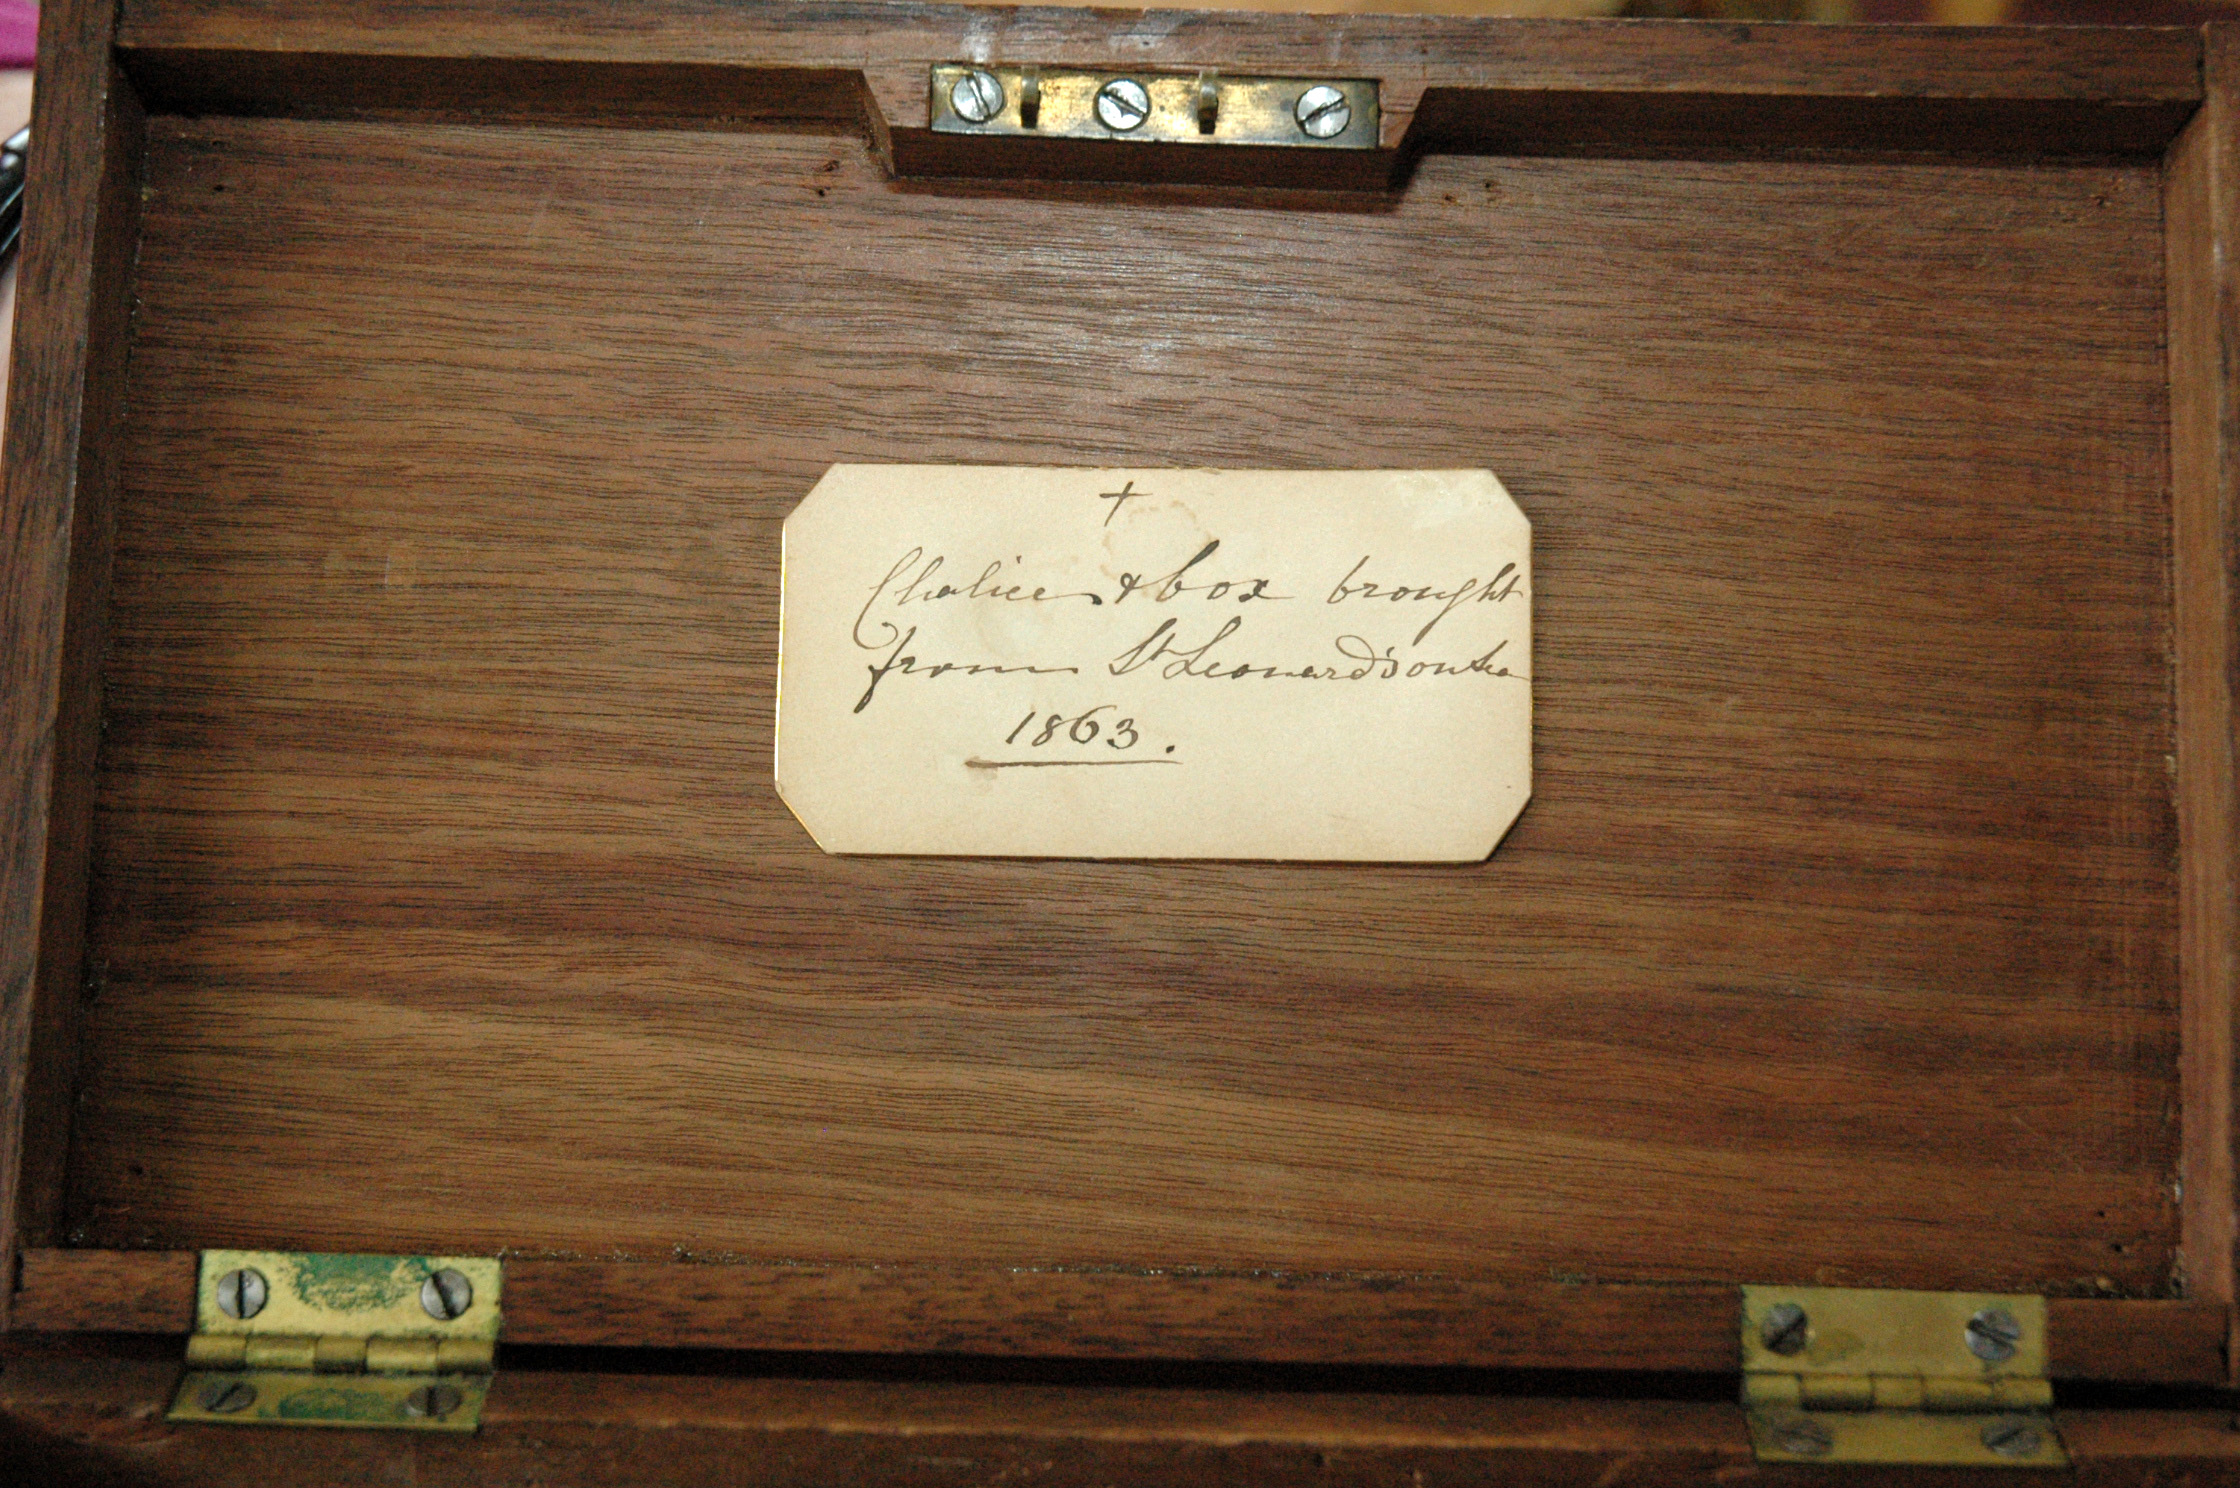 +
Chalice & box brought
from St Leonard's on Sea
1863.